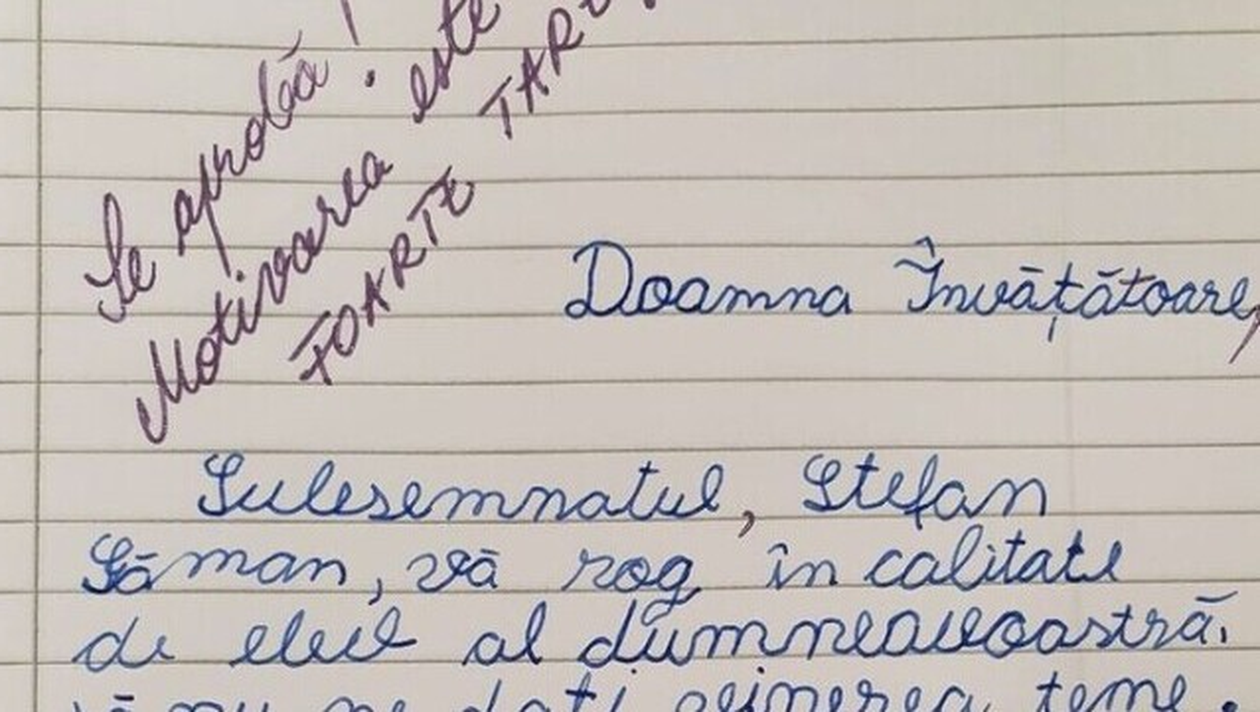 Se aprobă!
Motivarea este
FOARTE TARE
Doamna Învățătoare,
Subsemnatul, Ștefan
Găman, vă rog în calitate
de elev al dumneavoastră,
să nu ne dați teme.